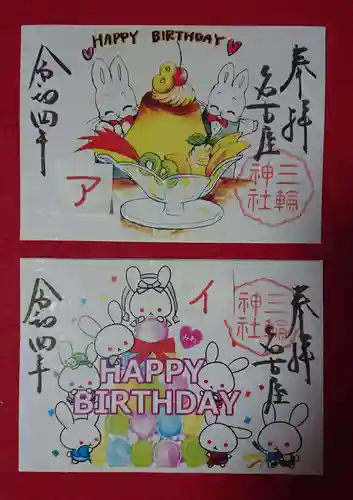 HAPPY BIRTHDAY
奉拝
名古屋
三輪
神社
令和四年
8
ア
奉拝
名古屋
三輪
神社
イ
令和四年
みわ
HAPPY
BIRTHDAY